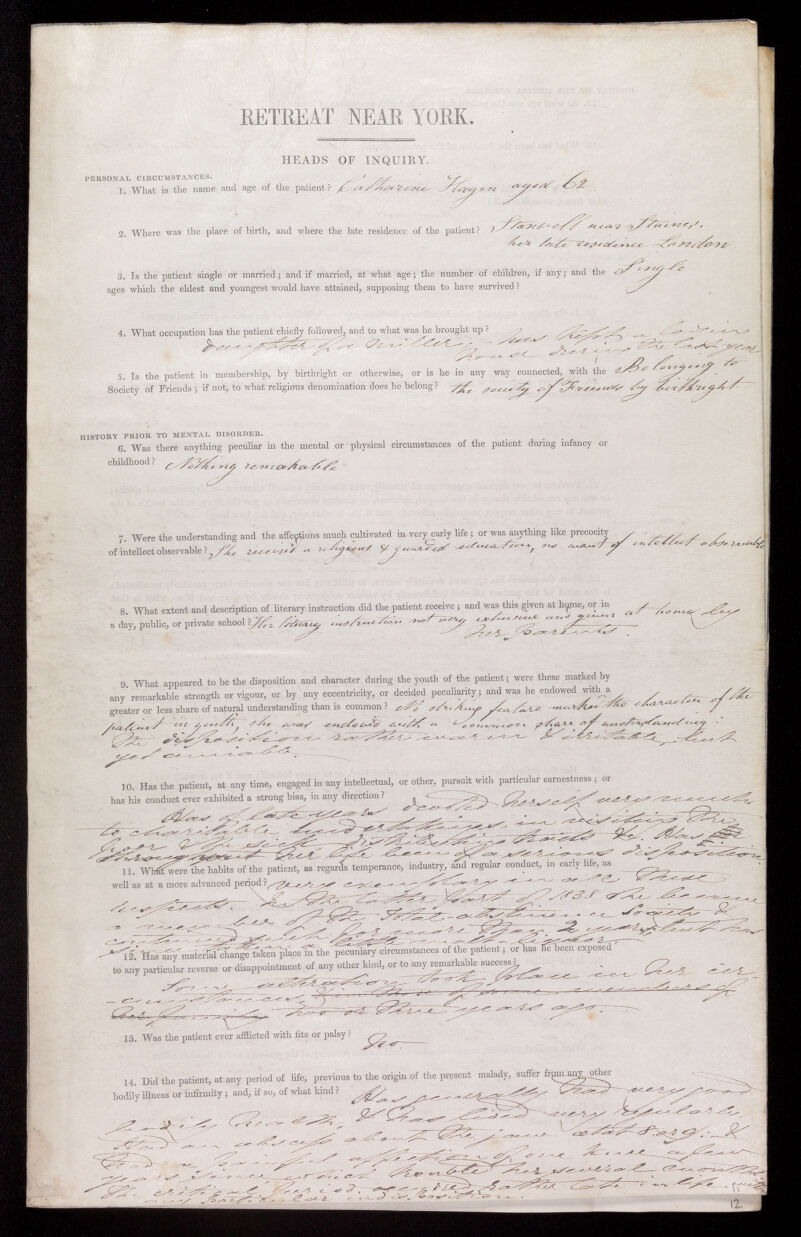 RETREAT NEAR YORK.
HEADS OF INQUIRY.
PERSONAL CIRCUMSTANCES.
1. What is the name and age of the patient? Catharine Hagen aged 62
2. Where was the place of birth, and where the late residence of the patient? Stanwell near Staines,
her late residence London
3. Is the patient single or married; and if married, at what age; the number of children, if any; and the Single
ages which the eldest and youngest would have attained, supposing them to have survived?
4. What occupation has the patient chiefly followed, and to what was he brought up?
daughter of a miller; has kept a lodging
house during the last year
5. Is the patient in membership, by birthright or otherwise, or is he in any way connected, with the Belonging to
Society of Friends; if not, to what religious denomination does he belong? the society of Friends by birthright
HISTORY PRIOR TO MENTAL DISORDER.
6. Was there anything peculiar in the mental or physical circumstances of the patient during infancy or
childhood? Nothing remarkable
7. Were the understanding and the affections much cultivated in very early life; or was anything like precocity
of intellect observable? She received a religious & guarded education, no want of intellect observable
8. What extent and description of literary instruction did the patient receive; and was this given at home, or in
a day, public, or private school? Her literary instruction not very extensive and given at home by
her parents.
9. What appeared to be the disposition and character during the youth of the patient; were these marked by
any remarkable strength or vigour, or by any eccentricity, or decided peculiarity; and was he endowed with a
greater or less share of natural understanding than is common? No striking feature marked the character of the
patient in youth, she was endowed with a common share of understanding:
The disposition rather warm & irritable, but
yet amiable.
10. Has the patient, at any time, engaged in any intellectual, or other, pursuit with particular earnestness; or
has his conduct ever exhibited a strong bias, in any direction?
Has of late years devoted herself very much
to charitable undertakings, in visiting the
poor & the sick, distributing tracts &c. Has
throughout her life been of a serious disposition.
11. What were the habits of the patient, as regards temperance, industry, and regular conduct, in early life, as
well as at a more advanced period? Very exemplary in all these
respects. In the latter part of 1838 she became
a member of the Total-abstinence Society &
continued for more than 2 years, but has
taken a little
12. Has any material change taken place in the pecuniary circumstances of the patient; or has he been exposed
to any particular reverse or disappointment of any other kind, or to any remarkable success?
Some alteration took place in her cir-
-cumstances, members of
her family two or three years ago.
13. Was the patient ever afflicted with fits or palsy? No.
14. Did the patient, at any period of life, previous to the origin of the present malady, suffer from any other
bodily illness or infirmity; and, if so, of what kind? Has generally had very good
bodily health, & has lived very regularly.
Had an abscess about the jaw ætat 8 or 9: &
had a painful affection of one knee a few
years since which troubled her several months
The critical period occurred rather late in life with
any particular indisposition.
12